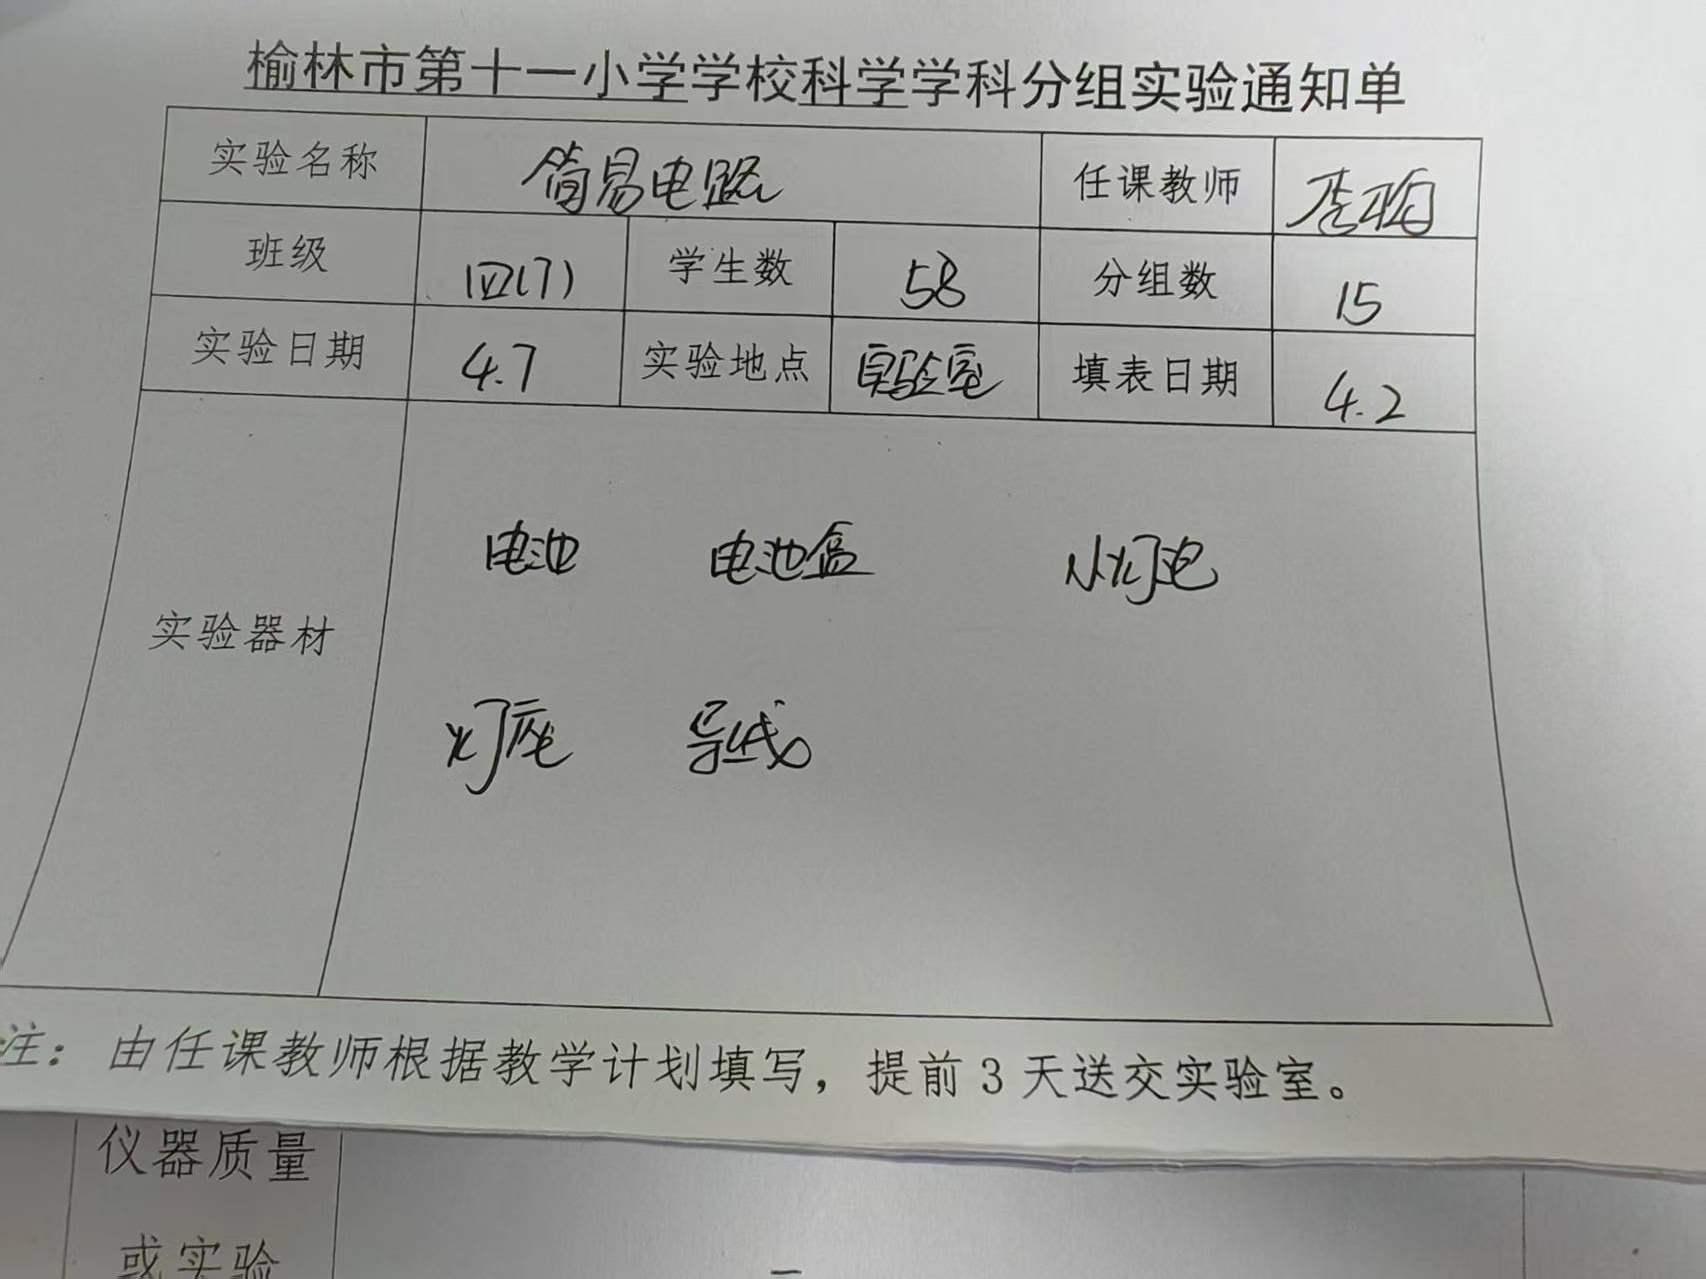 榆林市第十一小学学校科学学科分组实验通知单
实验名称 简易电路 任课教师 李
班级 四(7) 学生数 58 分组数 15
实验日期 4.7 实验地点 实验室 填表日期 4.2
电池 电池盒 小灯泡
实验器材
灯座 导线
注：由任课教师根据教学计划填写，提前3天送交实验室。
仪器质量
或实验